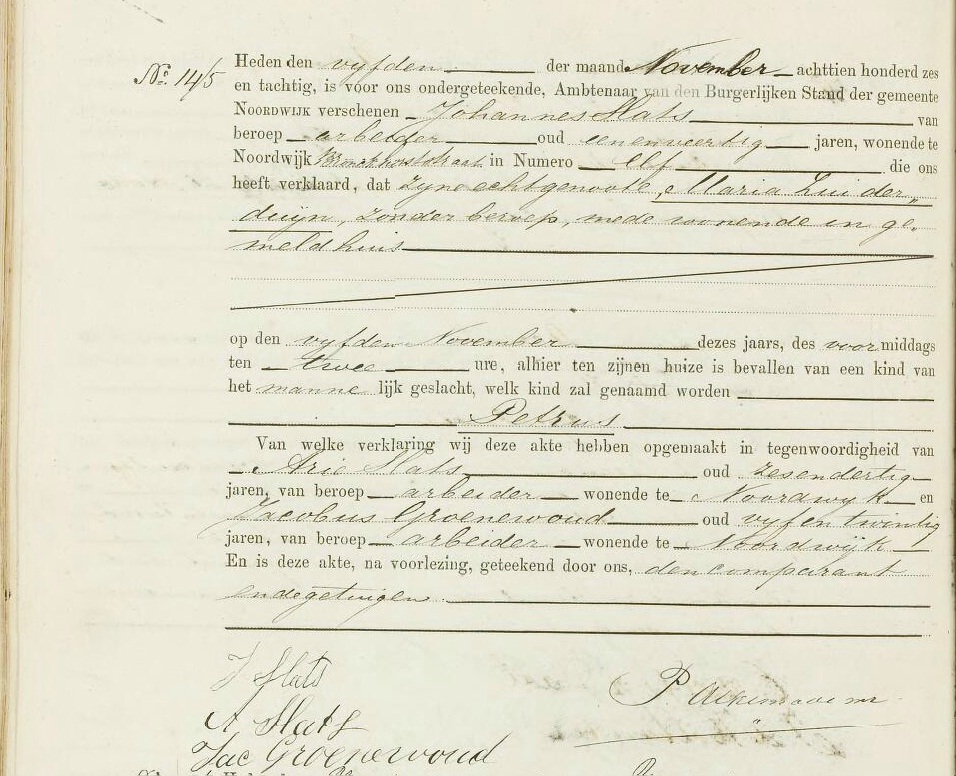 No. 145
Heden den vyfden der maand November achttien honderd zes
en tachtig, is voor ons ondergeteekende, Ambtenaar van den Burgerlijken Stand der gemeente
NOORDWIJK verschenen Johannes Slats van
beroep arbeider oud eenenveertig jaren, wonende te
Noordwijk Bronckhorststraat in Numero Elf die ons
heeft verklaard, dat zyne echtgenoote, Maria Luider„
duijn, zonder beroep, mede wonende in ge„
meld huis
op den vyfden November dezes jaars, des voormiddags
ten twee ure, alhier ten zijnen huize is bevallen van een kind van
het mannelijk geslacht, welk kind zal genaamd worden
Petrus
Van welke verklaring wij deze akte hebben opgemaakt in tegenwoordigheid van
Arie Slats oud zesendertig
jaren, van beroep arbeider wonende te Noordwyk en
Jacobus Groenewoud oud vyfentwintig
jaren, van beroep arbeider wonende te Noordwijk
En is deze akte, na voorlezing, geteekend door ons, den comparant
en de getuigen.
J Slats
P
A Slats
Jac Groenewoud